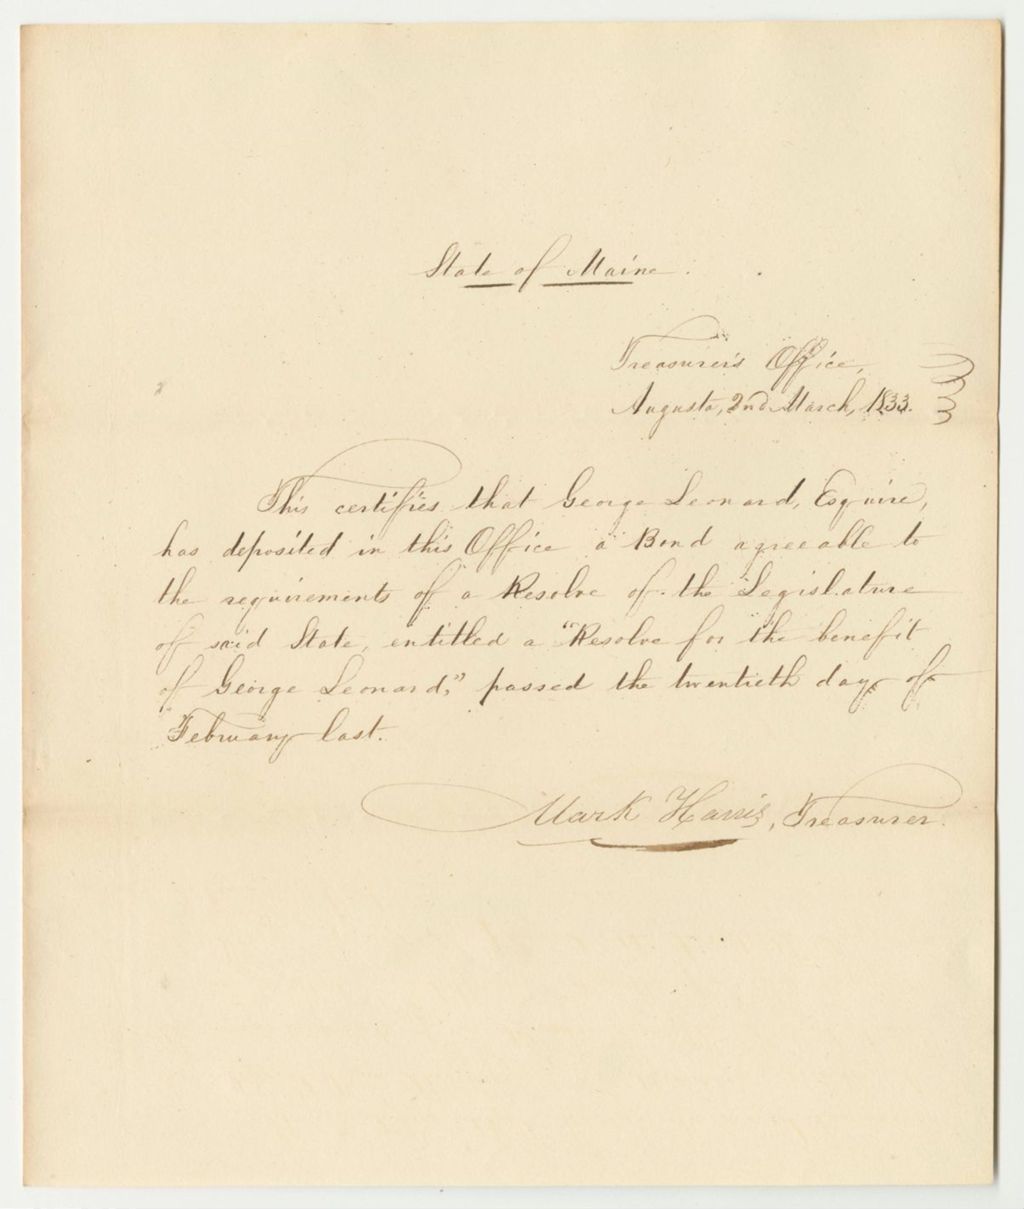 State of Maine.
Treasurer's Office,
Augusta, 2nd March, 1833.
This certifies that George Leonard, Esquire,
has deposited in this Office a Bond agreeable to
the requirements of a Resolve of the Legislature
of said State, entitled a "Resolve for the benefit
of George Leonard," passed the twentieth day of
February last.
Mark Harris, Treasurer.